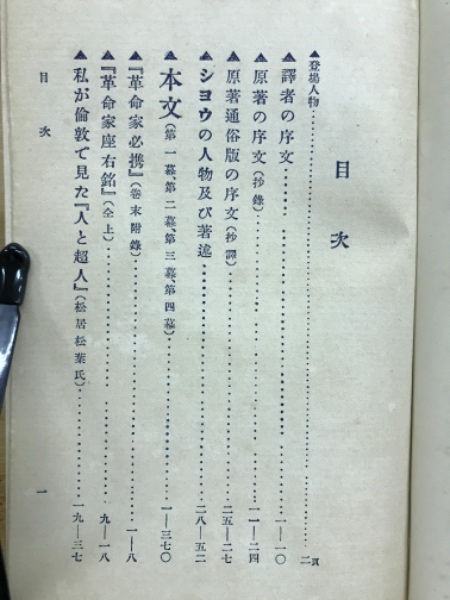 目次
▲登場人物……二頁
▲譯者の序文……一—一〇
▲原著の序文(抄錄)……一一—二四
▲原著通俗版の序文(抄譯)……二五—二七
▲シヨウの人物及び著述……二八—五二
▲本文(第一幕、第二幕、第三幕、第四幕)……一—三七〇
▲『革命家必携』(卷末附錄)……一—八
▲『革命家座右銘』(仝上)……九—一八
▲私が倫敦で見た『人と超人』(松居松葉氏)……一九—三七
目次
一